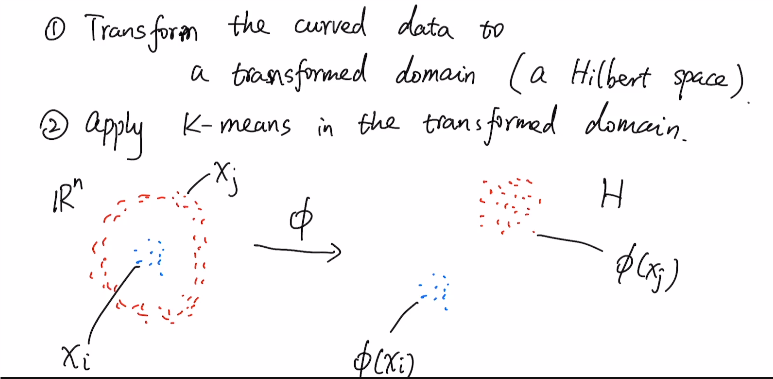 ① Transform the curved data to
a transformed domain (a Hilbert space).
② apply K-means in the transformed domain.
ℝⁿ
xⱼ
ϕ
H
ϕ(xⱼ)
xᵢ
ϕ(xᵢ)